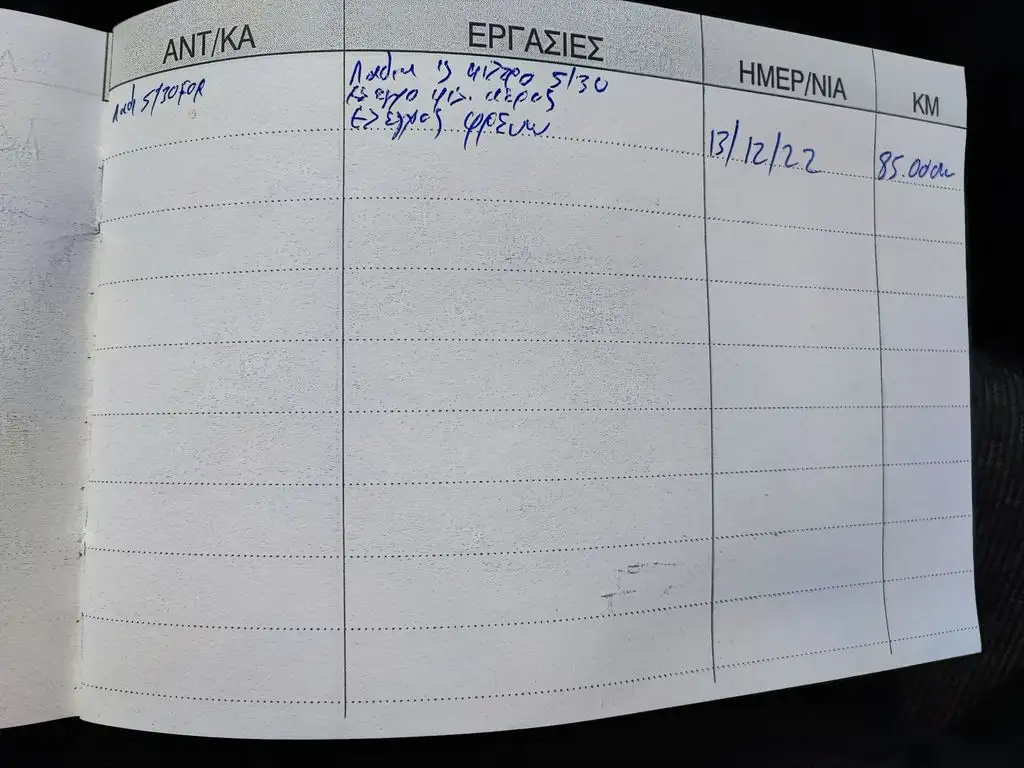 ΑΝΤ/ΚΑ ΕΡΓΑΣΙΕΣ ΗΜΕΡ/ΝΙΑ ΚΜ
Λαδι 5/30 FOR
Λαδια φιλτρο 5/30
φιλ. αερος
Ελεγχος φρενων
13/12/22 85.000